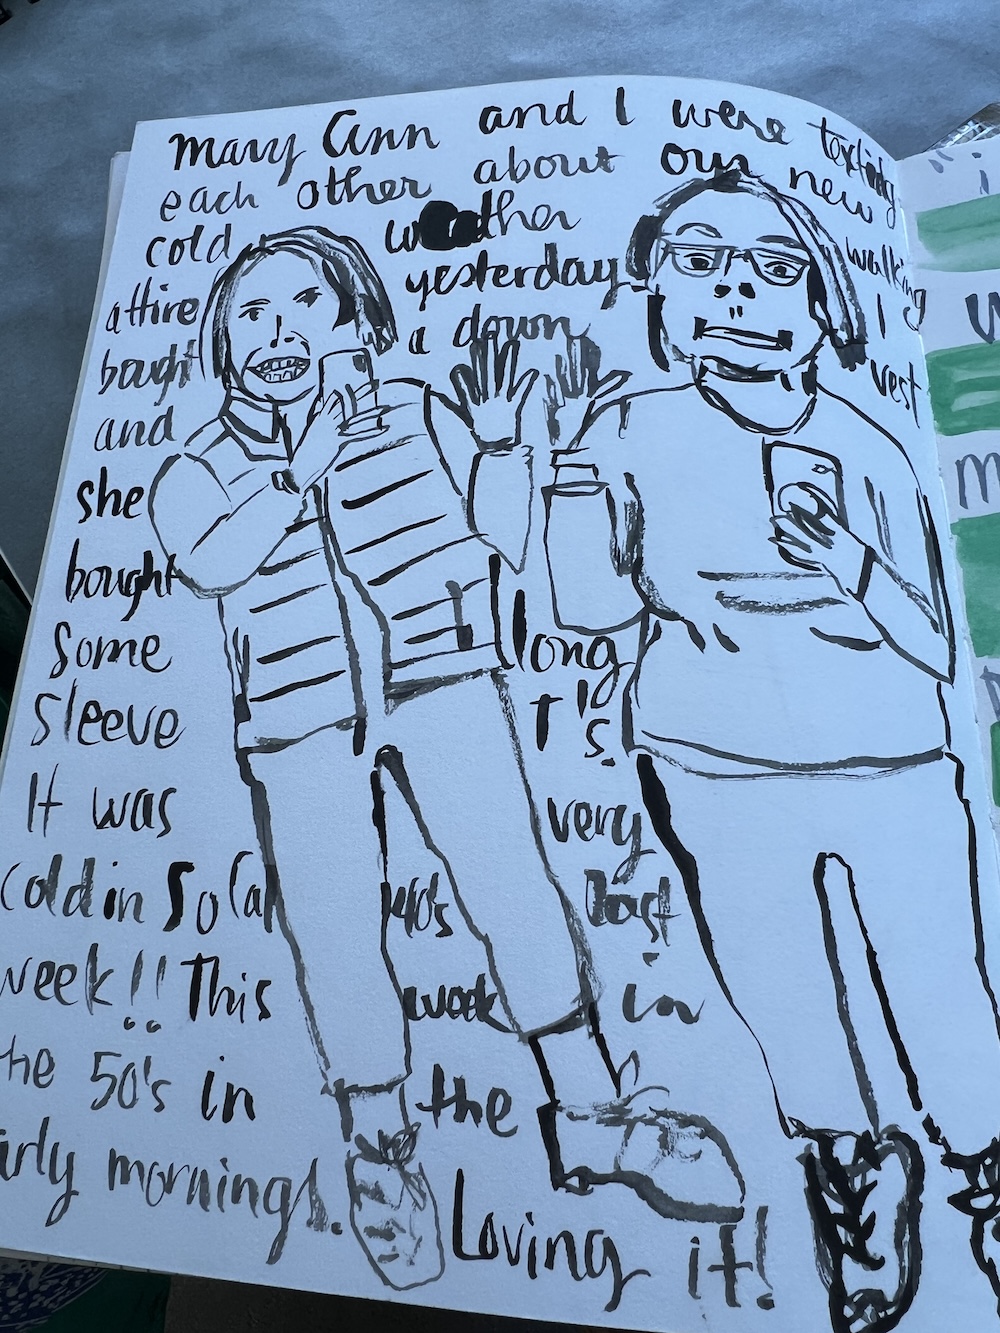 Mary Ann and I were texting
each other about our new
cold weather walking
attire yesterday I
bought a down vest
and
she
bought
some long
sleeve T's.
It was very
cold in SoCal 40's last
week!! This week in
the 50's in the
early mornings.
Loving it!